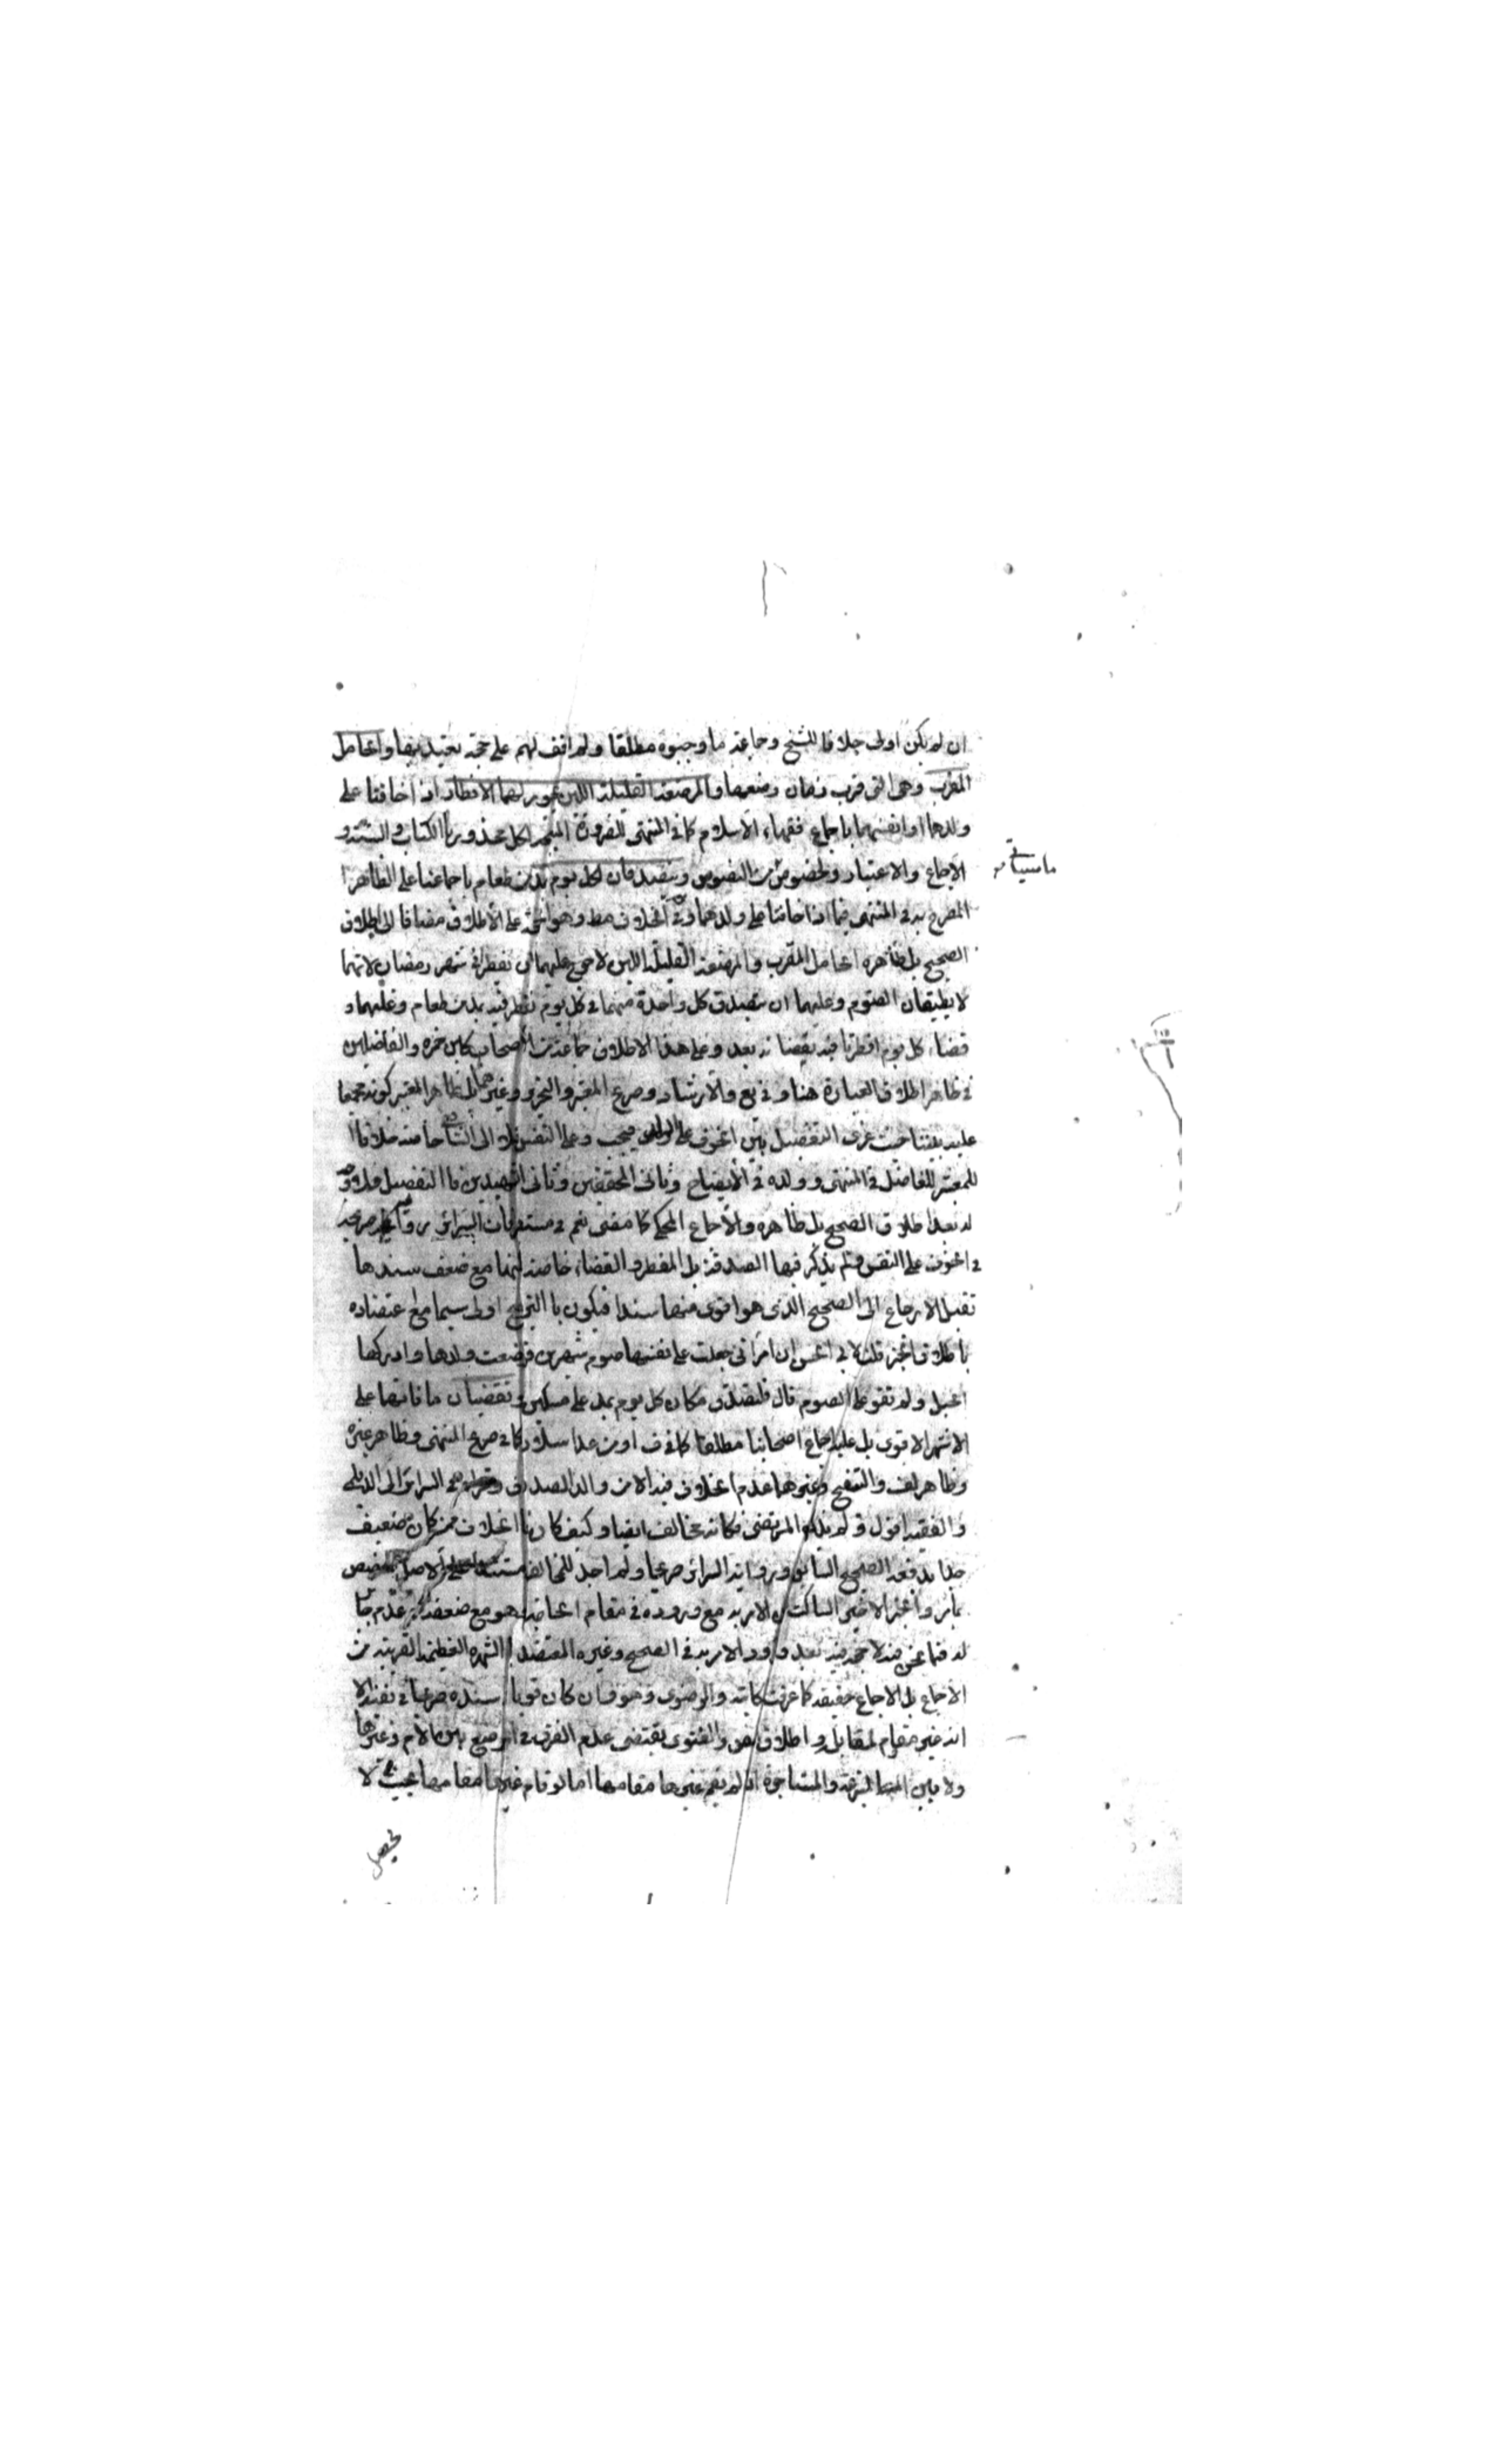 ان لم يكن اولى خلافا للشيخ وجماعة فاوجبوه مطلقا ولم اقف لهم على حجة يعتد بها والحامل
المقرب وهى التى قرب زمان وضعها والمرضعة القليلة اللبن يجوز لهما الافطار اذا خافتا على
ولدهما او انفسهما باجماع فقهاء الاسلام كما فى المنتهى للضرورة المبيحة لكل محذور بالكتاب والسنة و
الاجماع والاعتبار ولخصوص من النصوص ويتصدقان لكل يوم بمد من طعام باجماعنا على الظاهر
ما سياتى
المصرح به فى المنتهى فيما اذا خافتا على ولدهما وفى الخلاف مط وهو الحجة على الاطلاق مضافا الى اطلاق
الصحيح بل ظاهره الحامل المقرب والمرضعة القليلة اللبن لا حرج عليهما ان يفطرا فى شهر رمضان لانهما
لا يطيقان الصوم وعليهما ان يتصدق كل واحدة منهما فى كل يوم تفطر فيه بمد من طعام وعليهما
قضاء كل يوم افطرتا فيه يقضيانه بعد وعلى هذا الاطلاق جماعة من الاصحاب كابن حمزه والفاضلين
فى ظاهر اطلاق العبارة هنا وفى يع والارشاد وصريح المعتبر والتحرير وغيرهما بل ظاهر المعتبر كونه مجمعا
عليه بيننا حيث عزى التفصيل بين الخوف على الولد فيجب وعلى النفس فلا الى الشافعى خاصة خلافا
للمعتبر للفاضل فى المنتهى وولده فى الايضاح وثانى المحققين وثانى الشهيدين فالتفصيل ولا وجه
له بعد اطلاق الصحيح بل ظاهره والاجماع المحكى كما مضى نعم فى مستطرفات السرائر رواية صريحة
فى الخوف على النفس ولم يذكر فيها الصدقة بل المفطر والقضاء خاصة لكنها مع ضعف سندها
تقبل الارجاع الى الصحيح الذى هو اقوى منها سندا فيكون بالترجيح اولى سيما مع اعتضاده
باطلاق الخبر قلت لابى الحسن ان امراتى جعلت على نفسها صوم شهرين فوضعت ولدها وادركها
الحبل ولم تقو على الصوم قال فلتصدق مكان كل يوم بمد على مسكين وتقضيان ما فاتهما على
الاشهر الاقوى بل عليه اجماع اصحابنا مطلقا كما فى ف او من عدا سلار كما فى صريح المنتهى وظاهر غيره
وظاهر لف والتنقيح وغيرهما عدم الخلاف فيه الا من والد الصدوق السرائر الى الديلمى
والفقيه اقول ولم يذكره المرتضى فكانه مخالف ايضا وكيف كان فالخلاف ممن كان ضعيف
جدا يدفعه الصحيح السابق ورواية السرائر صريحا ولم اجد للمخالف مستندا على الاصل
بما مر والخبر الاخير الساكت عن الامر به مع وروده فى مقام الحاجة وهو مع ضعفه
له فيما نحن فيه لا حجة فيه بعد ورود الامر به فى الصحيح وغيره المعتضد بالشهرة العظيمة القريبة من
الاجماع بل الاجماع حقيقة كما عرفت حكايته والرضوى وهو وان كان قويا سنده
انه غير مقاوم لمقابله واطلاق النص والفتوى يقتضى عدم الفرق فى المرضع بين الام وغيرها
ولا بين المتبرعة والمستاجرة اذا لم يقم غيرها مقامها اما لو قام غيرها مقامها بحيث لا
يحصل